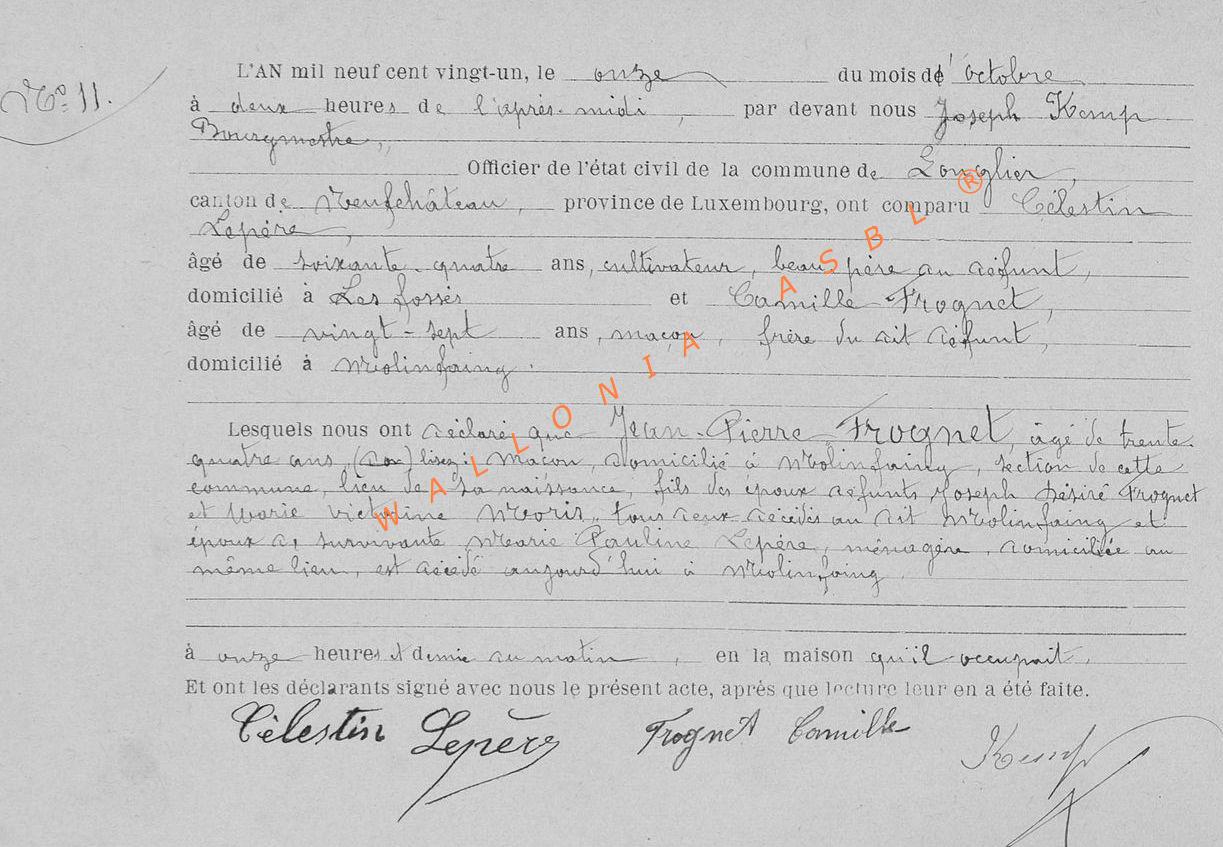 No 11.
L'AN mil neuf cent vingt-un, le onze du mois d'octobre
à deux heures de l'après-midi, par devant nous Joseph Kemp
Bourgmestre,
Officier de l'état civil de la commune de Longlier,
canton de Neufchâteau, province de Luxembourg, ont comparu Célestin
Lepère,
âgé de soixante-quatre ans, cultivateur, beau-père au défunt,
domicilié à Les fossés et Camille Frognet,
âgé de vingt-sept ans, maçon, frère du dit défunt,
domicilié à Molinfaing.
Lesquels nous ont déclaré que Jean-Pierre Frognet, âgé de trente-
quatre ans, lisez: maçon, domicilié à Molinfaing, section de cette
commune, lieu de sa naissance, fils des époux défunts Joseph Désiré Frognet
et Marie Victorine Moris, tous deux décédés au dit Molinfaing et
époux de survivante Marie Pauline Lepère, ménagère, domiciliée au
même lieu, est décédé aujourd'hui à Molinfaing.
à onze heures et demie du matin, en la maison qu'il occupait.
Et ont les déclarants signé avec nous le présent acte, après que lecture leur en a été faite.
Célestin Lepère Frognet Camille Kemp
WALLONIA ASBL ®